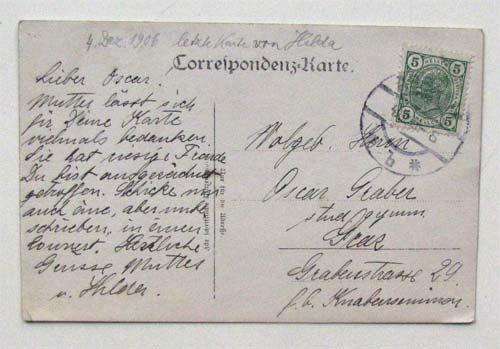 4. Dez. 1906 letzte Karte von Hilda
Correspondenz-Karte.
5 5
5 5
Lieber Oscar.
Mutter lässt sich
für Deine Karte
vielmals bedanken.
Sie hat riesige Freude
Du bist ausgezeichnet
getroffen. Schicke mir
auch eine, aber unbe
schrieben, in einem
Couvert. Herzliche
Grüsse Mutter
u. Hilda.
Wolgeb. Herrn
Oscar Graber
stud. gymn.
Graz
Grabenstrasse 29.
f. b. Knabenseminar.
b *